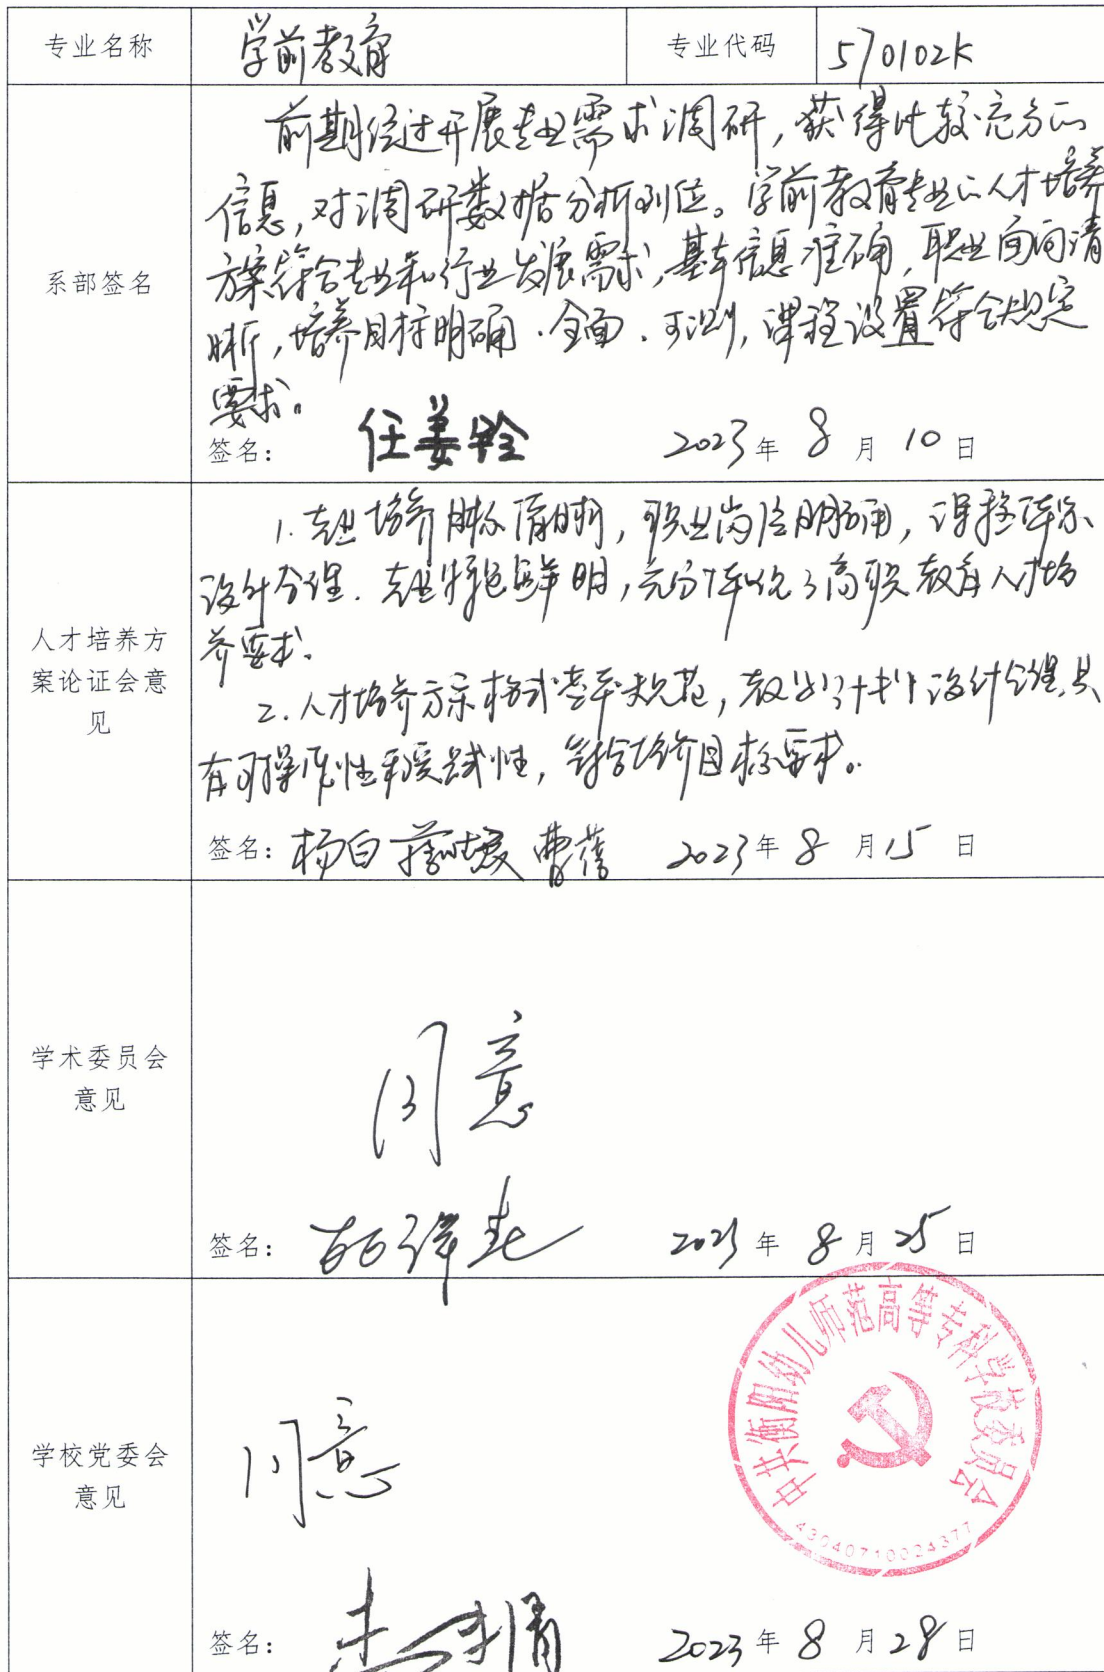 专业名称 学前教育 专业代码 570102K
前期经过开展专业需求调研，获得比较充分的
信息，对调研数据分析到位。学前教育专业的人才培养
方案符合专业和行业发展需求，基本信息准确，职业面向清
晰，培养目标明确、全面、可测，课程设置符合规定
要求。
系部签名
签名： 任姜 2023年8月10日
1.专业培养目标清晰，职业岗位明确，课程体系
设计合理．专业特色鲜明，充分体现了高职教育人才培
养要求．
人才培养方案论证会意见
2.人才培养方案格式基本规范，教学计划设计合理，具
有可操作性和实践性，符合培养目标要求。
签名： 杨白 曹蓓 2023年8月15日
学术委员会意见
同意
签名： 2023年8月25日
中共衡阳幼儿师范高等专科学校委员会
学校党委会意见
同意
43040710024377
签名： 2023年8月28日